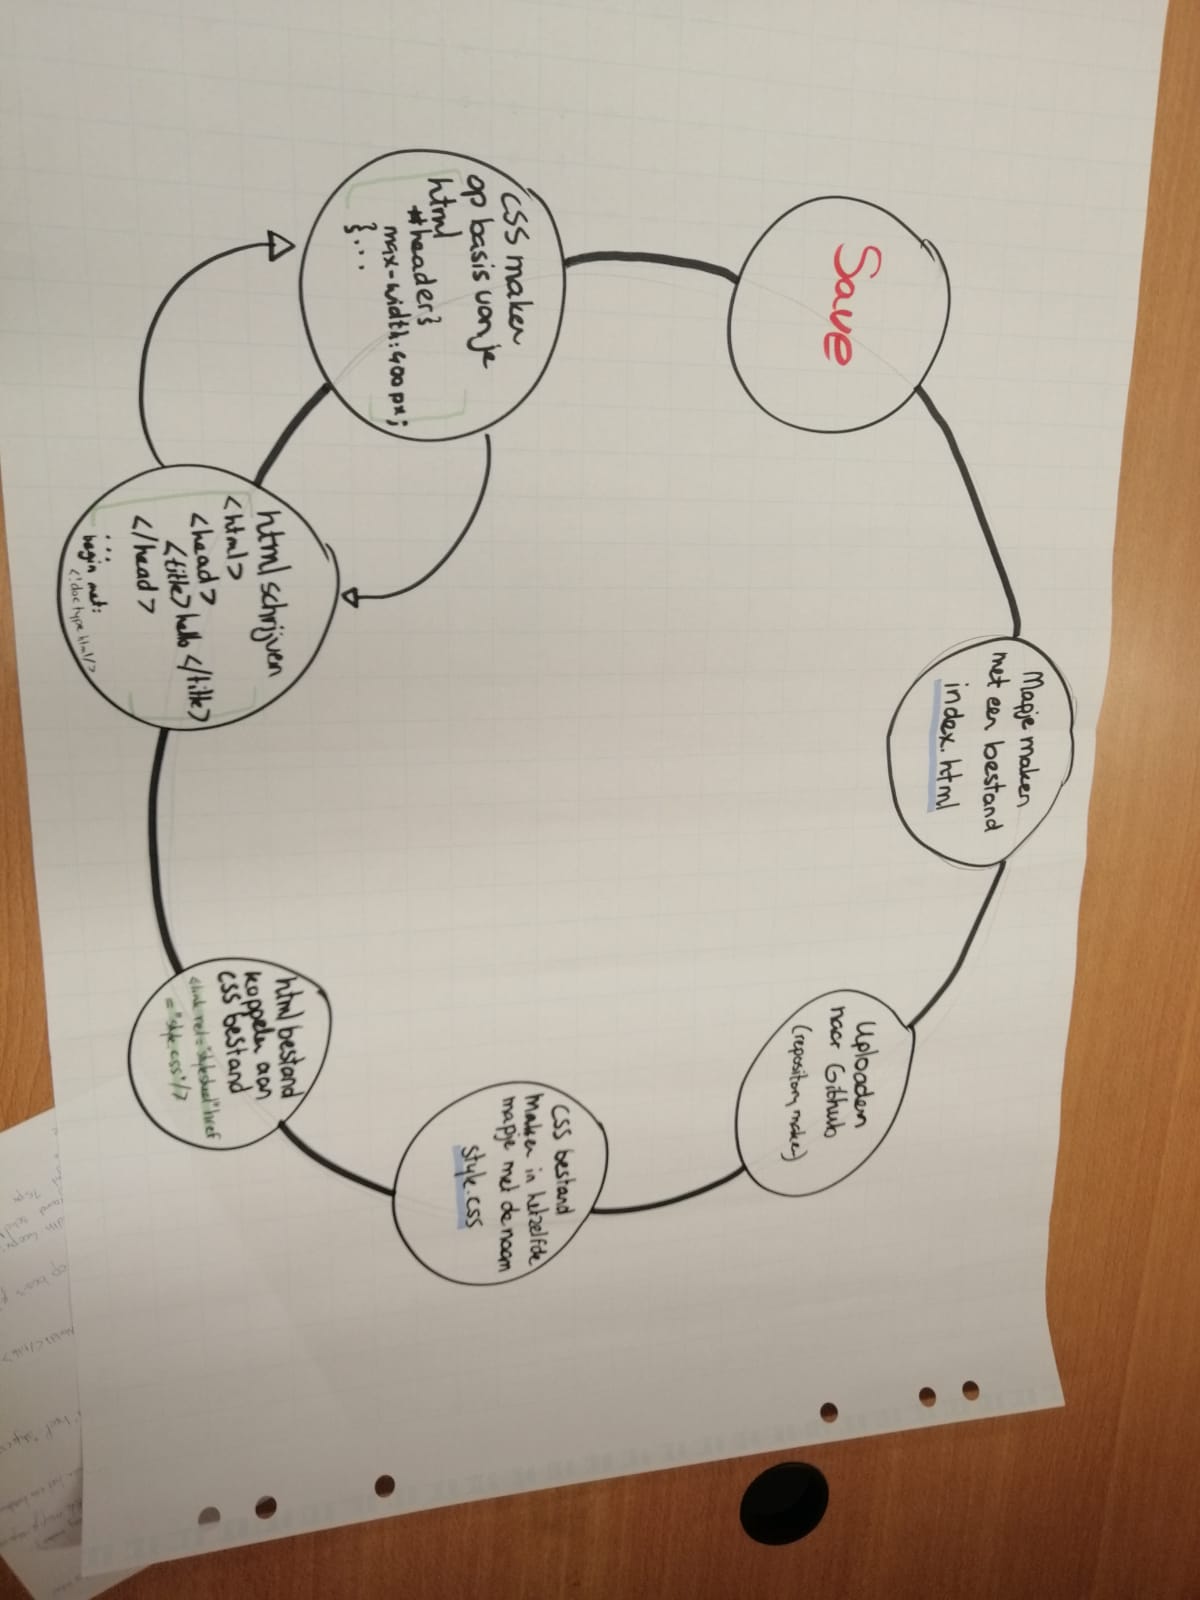 Mapje maken
met een bestand
index.html
Uploaden
naar Github
(repository maken)
CSS bestand
maken in hetzelfde
mapje met de naam
style.css
html bestand
koppelen aan
css bestand
<link rel="stylesheet" href
="style.css"/>
html schrijven
<html>
<head>
<title>hello</title>
</head>
...
begin met:
<!doctype html/>
CSS maken
op basis van je
html
#header}
max-width:400px;
}...
Save